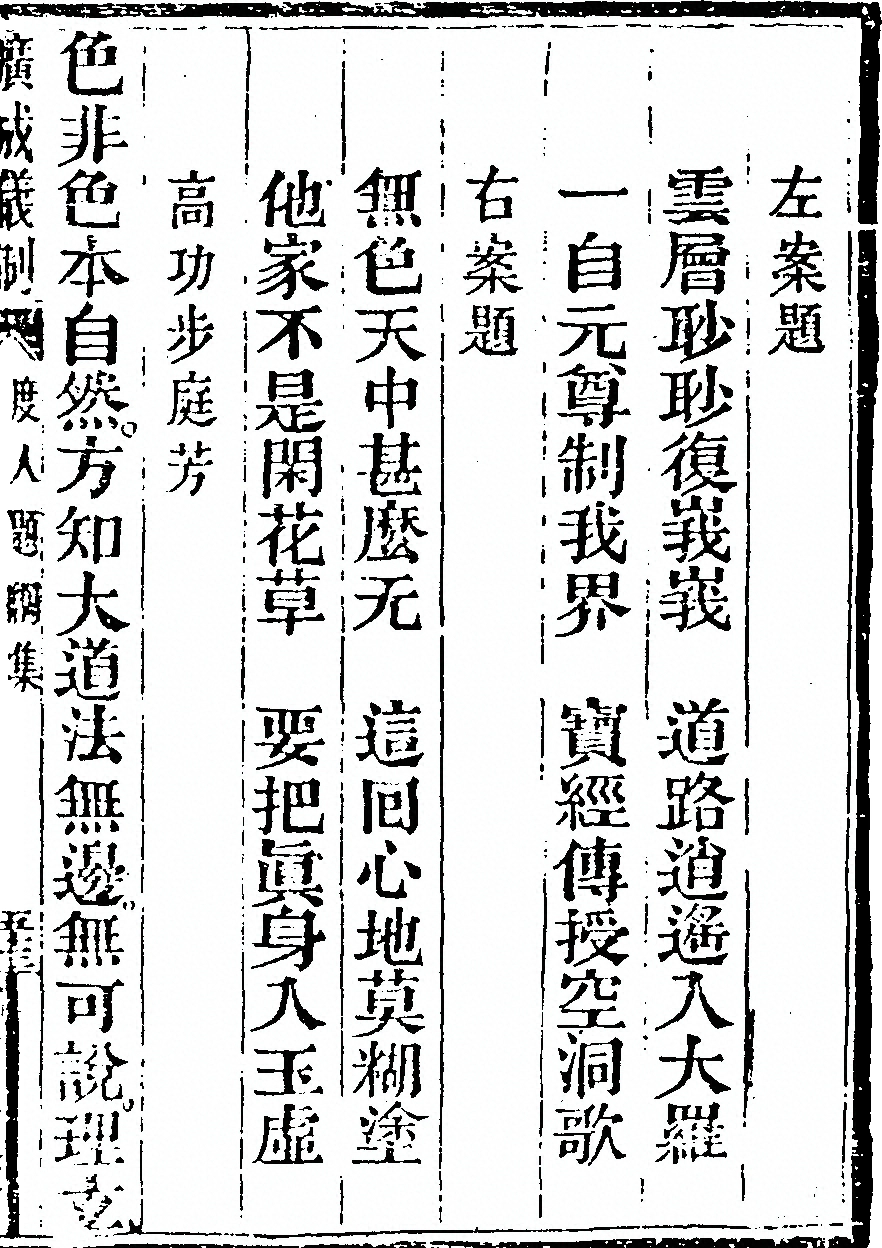 左案題
雲層𦕈𦕈復峩峩　道路逍遙入大羅
一自元尊制我界　寶經傳授空洞歌
右案題
無色天中甚麽无　這囘心地莫糊塗
他家不是閑花草　要把眞身入玉虛
高功步庭芳
色非色本自然。方知大道法無邊。無可說。理玄
廣成儀制　度人題綱集